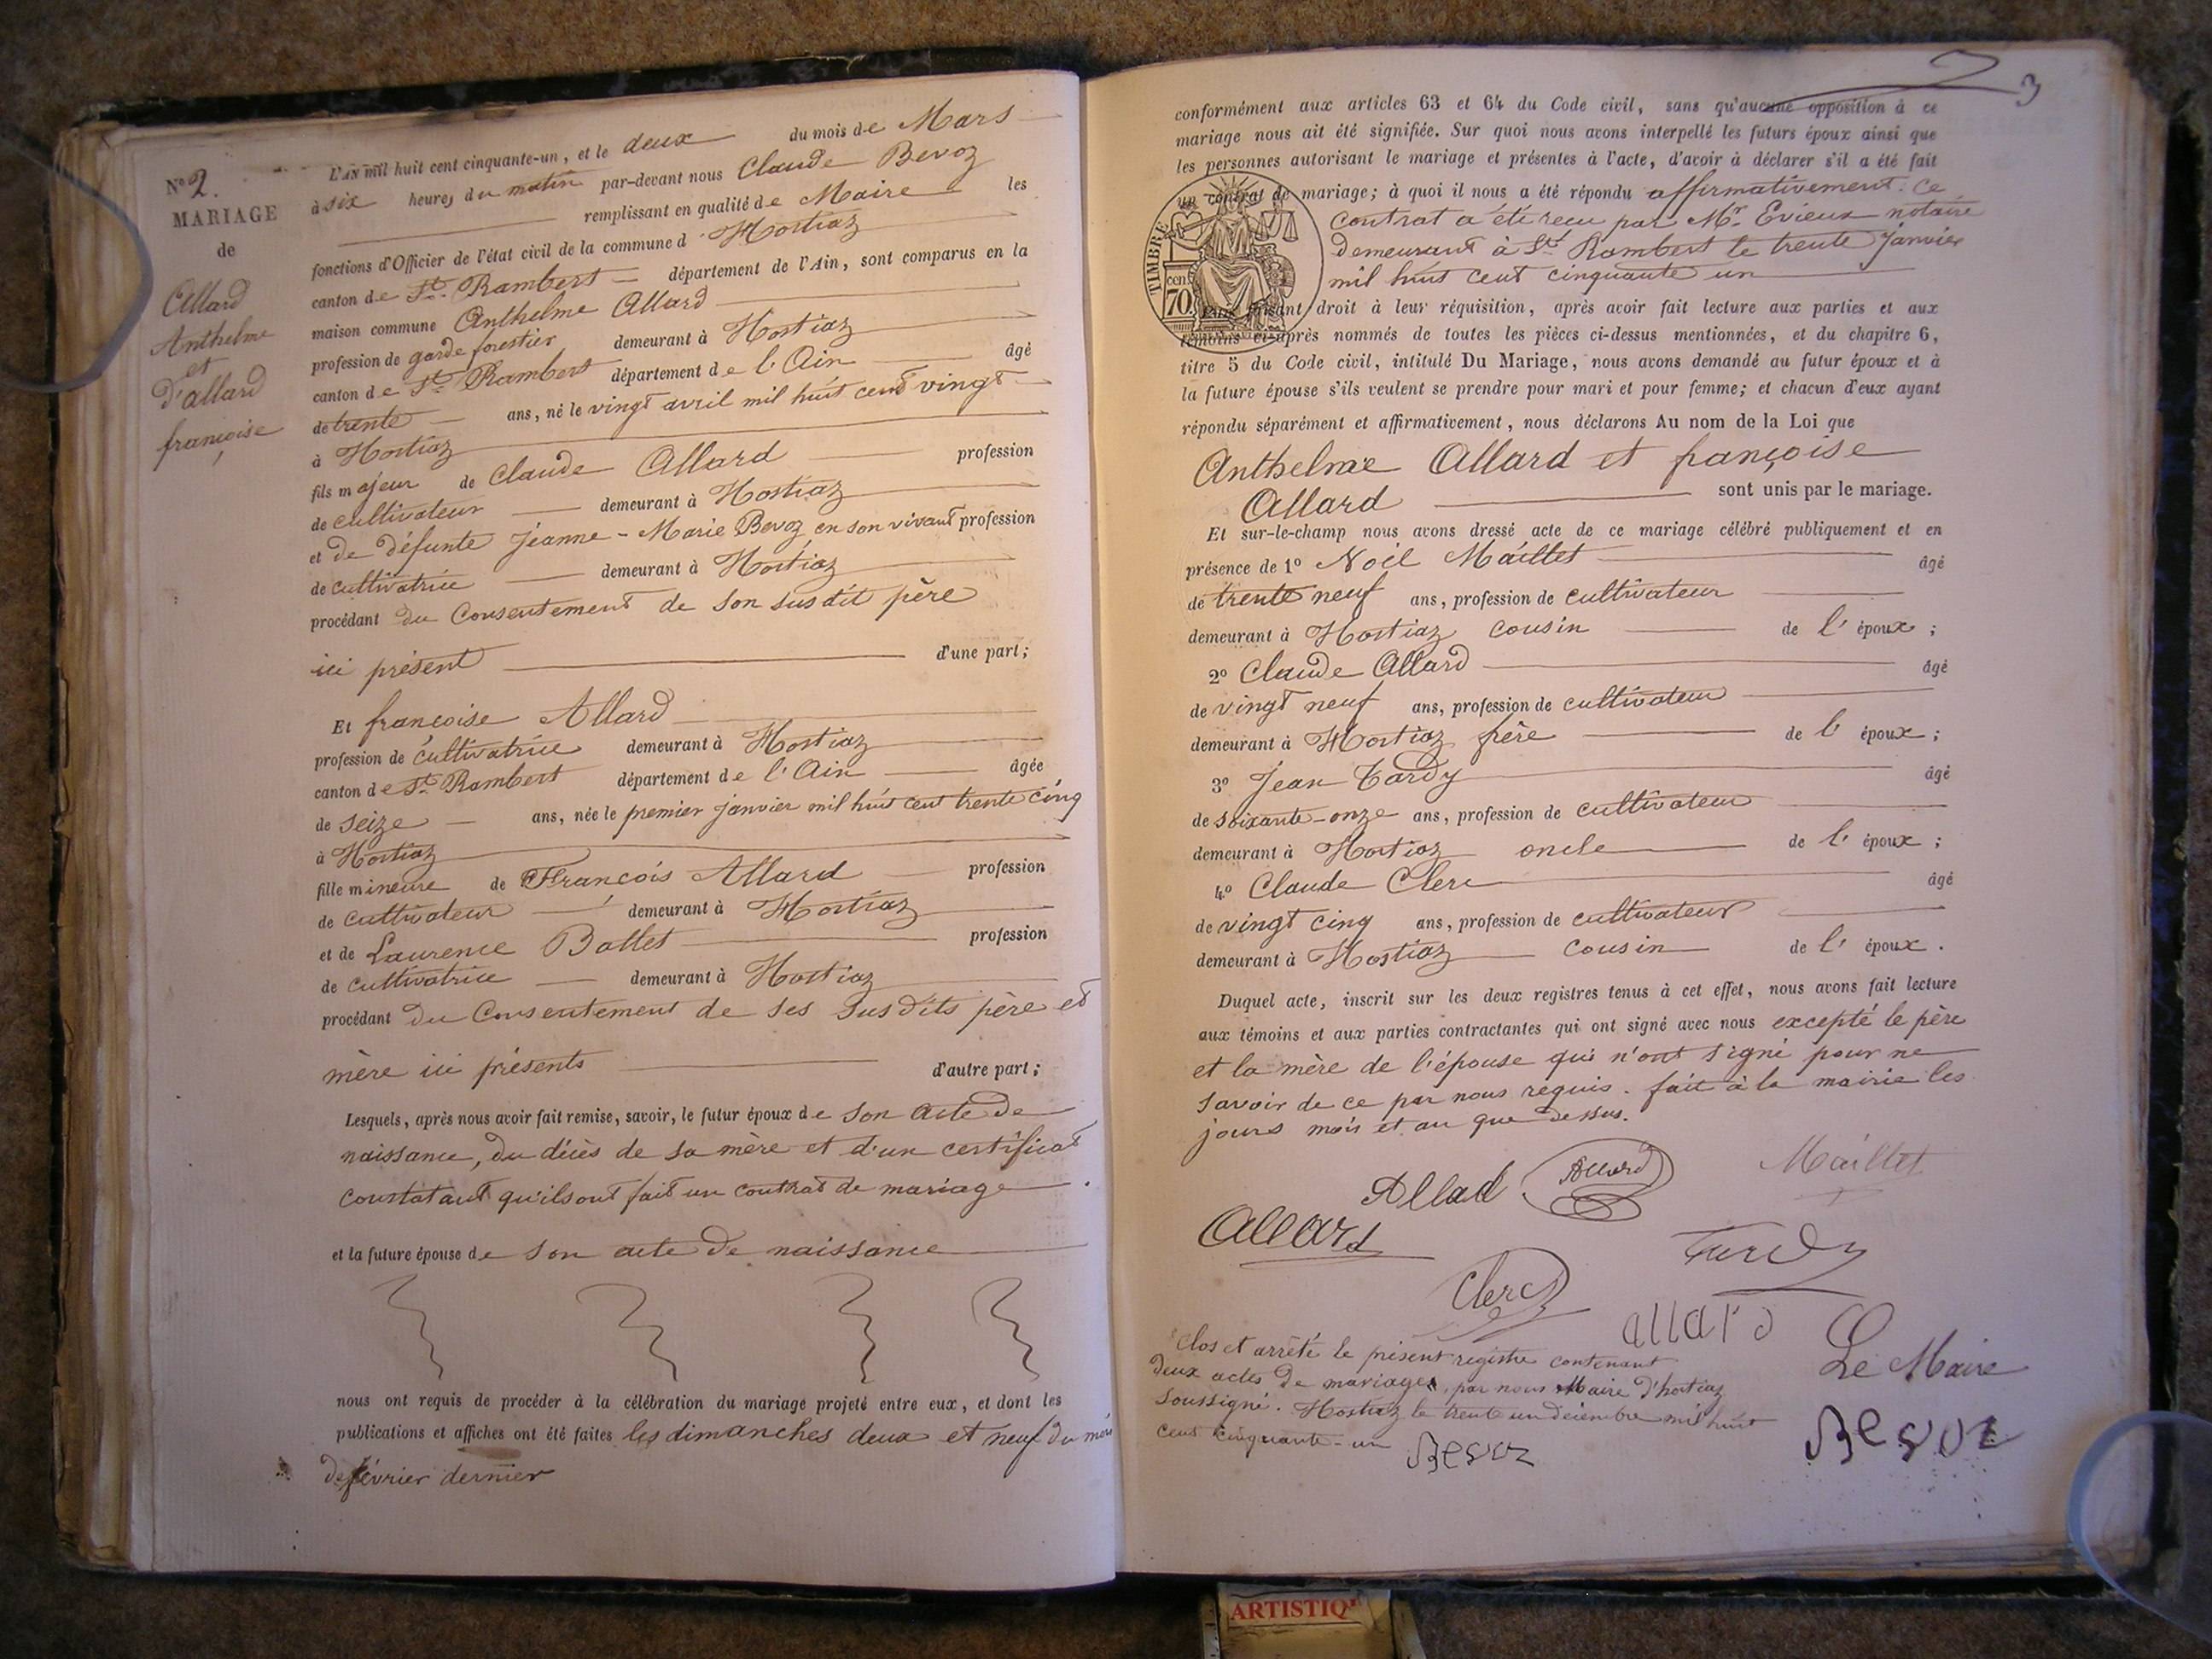 N° 2.
MARIAGE
de
Allard
Anthelme
et
D'allard
françoise
L'AN mil huit cent cinquante-un, et le deux du mois de Mars
à six heures du matin par-devant nous Claude Bevoz
remplissant en qualité de Maire les
fonctions d'Officier de l'état civil de la commune d'Hostiaz
canton de St. Rambert département de l'Ain, sont comparus en la
maison commune Anthelme Allard
profession de garde forestier demeurant à Hostiaz
canton de St. Rambert département de l'Ain âgé
de trente ans, né le vingt avril mil huit cent vingt
à Hostiaz
fils majeur de Claude Allard profession
de cultivateur demeurant à Hostiaz
et de défunte Jeanne-Marie Bevoz en son vivant profession
de cultivatrice demeurant à Hostiaz
procédant du Consentement de son susdit père
ici présent d'une part;
Et françoise Allard
profession de cultivatrice demeurant à Hostiaz
canton de St. Rambert département de l'Ain âgée
de seize ans, née le premier janvier mil huit cent trente cinq
à Hostiaz
fille mineure de François Allard profession
de cultivateur demeurant à Hostiaz
et de Laurence Ballet profession
de cultivatrice demeurant à Hostiaz
procédant du Consentement de ses susdits père et
mère ici présents d'autre part;
Lesquels, après nous avoir fait remise, savoir, le futur époux de son acte de
naissance, du décès de sa mère et d'un certificat
constatant qu'ils ont fait un contrat de mariage.
et la future épouse de son acte de naissance
nous ont requis de procéder à la célébration du mariage projeté entre eux, et dont les
publications et affiches ont été faites les dimanches deux et neuf du mois
de février dernier
3
conformément aux articles 63 et 64 du Code civil, sans qu'aucune opposition à ce
mariage nous ait été signifiée. Sur quoi nous avons interpellé les futurs époux ainsi que
les personnes autorisant le mariage et présentes à l'acte, d'avoir à déclarer s'il a été fait
un contrat de mariage; à quoi il nous a été répondu affirmativement. Ce
contrat a été reçu par Mr. Evieux notaire
demeurant à St. Rambert le trente janvier
mil huit cent cinquante un
TIMBRE
70 cen.
Puis faisant droit à leur réquisition, après avoir fait lecture aux parties et aux
témoins ci-après nommés de toutes les pièces ci-dessus mentionnées, et du chapitre 6,
titre 5 du Code civil, intitulé Du Mariage, nous avons demandé au futur époux et à
la future épouse s'ils veulent se prendre pour mari et pour femme; et chacun d'eux ayant
répondu séparément et affirmativement, nous déclarons Au nom de la Loi que
Anthelme Allard et françoise
Allard sont unis par le mariage.
Et sur-le-champ nous avons dressé acte de ce mariage célébré publiquement et en
présence de 1° Noël Maillet âgé
de trente neuf ans, profession de cultivateur
demeurant à Hostiaz cousin de l'époux;
2° Claude Allard âgé
de vingt neuf ans, profession de cultivateur
demeurant à Hostiaz frère de l'époux;
3° Jean Tardy âgé
de soixante-onze ans, profession de cultivateur
demeurant à Hostiaz oncle de l'époux;
4° Claude Clerc âgé
de vingt cinq ans, profession de cultivateur
demeurant à Hostiaz cousin de l'époux.
Duquel acte, inscrit sur les deux registres tenus à cet effet, nous avons fait lecture
aux témoins et aux parties contractantes qui ont signé avec nous excepté le père
et la mère de l'épouse qui n'ont signé pour ne
savoir de ce par nous requis. fait à la mairie les
jours mois et an que dessus.
Allad Allard Maillet
Allard Tardy
Clerc allard
Le Maire
Bevoz
Clos et arrêté le présent registre contenant
deux actes de mariages, par nous Maire d'hostiaz
soussigné. Hostiaz le trente un décembre mil huit
cent cinquante-un Bevoz
ARTISTIQ